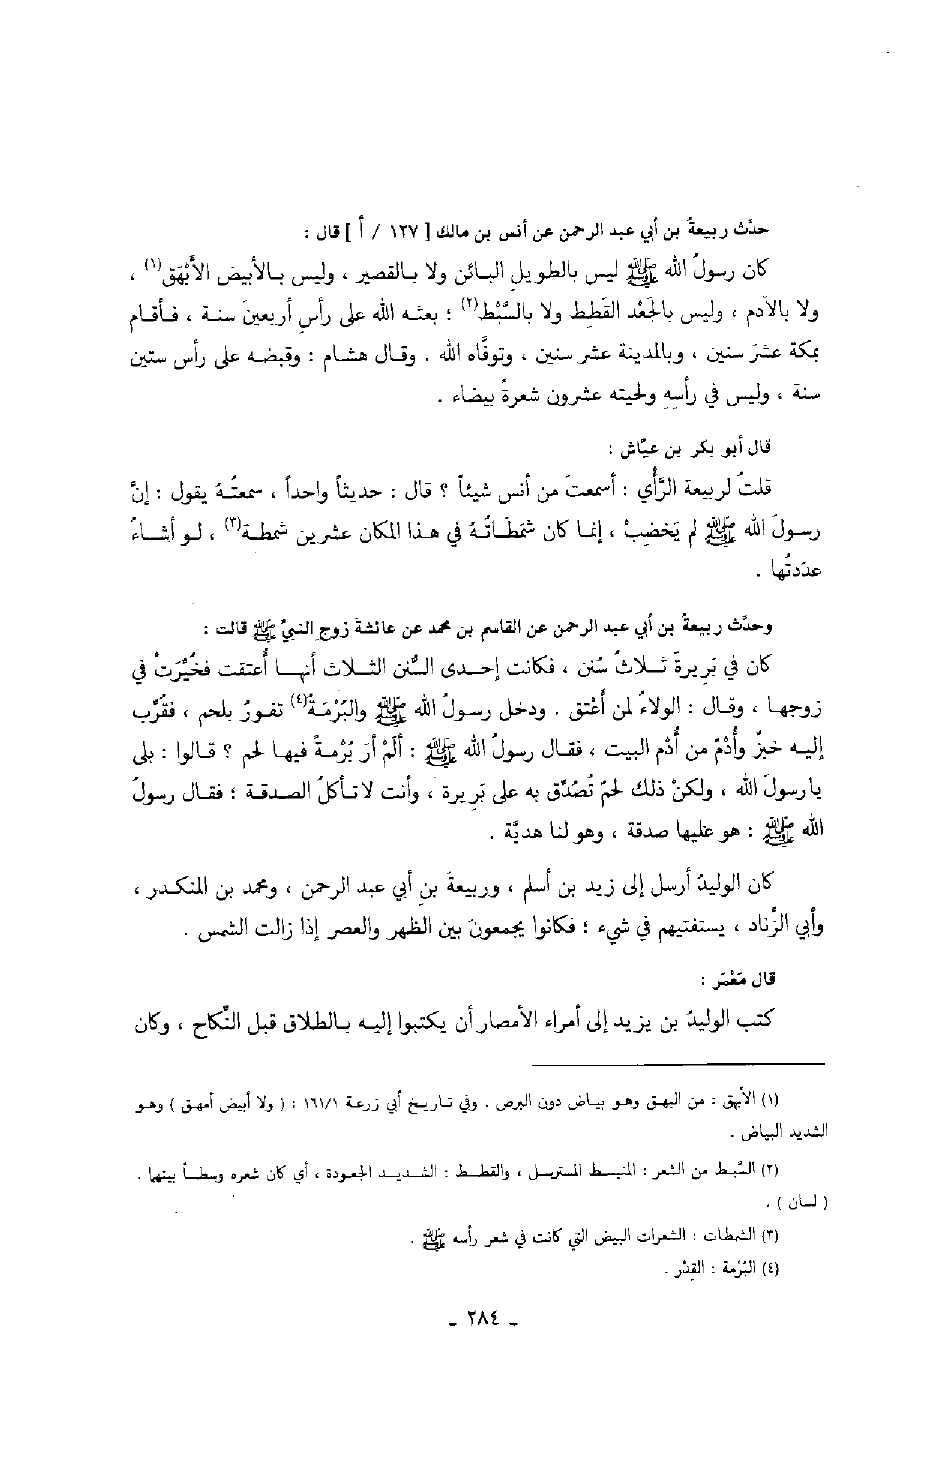 حدّث ربيعةُ بن أبي عبد الرحمن عن أنس بن مالك [ ١٢٧ / أ ] قال :
كان رسولُ الله ﷺ ليس بالطويلِ البائن ولا بالقصير ، وليس بالأبيضِ الأَبْهَق(١) ،
ولا بالآدم ، وليس بالجَعْد القَطَط ولا بالسَّبْط(٢) ؛ بعثه الله على رأسِ أربعينَ سنة ، فأقام
بمكة عشرَ سنين ، وبالمدينة عشر سنين ، وتوفَّاه الله . وقال هشام : وقبضه على رأس ستين
سنة ، وليس في رأسِهِ ولحيته عشرون شعرةً بيضاء .
قال أبو بكر بن عيّاش :
قلتُ لربيعة الرَّأي : أسمعتَ من أنس شيئاً ؟ قال : حديثاً واحداً ، سمعتُه يقول : إنَّ
رسولَ الله ﷺ لم يَخضِبْ ، إنما كان شَمَطَاتُهُ في هذا المكان عشرين شمطة(٣) ، لو أشاءُ
عدَدتُها .
وحدّث ربيعةُ بن أبي عبد الرحمن عن القاسم بن محمد عن عائشة زوج النبيّ ﷺ قالت :
كان في بَرِيرةَ ثلاثُ سُنَن ، فكانت إحدى السُّنن الثلاث أنها أُعتقت فخُيِّرَتْ في
زوجها ، وقال : الولاءُ لمن أَعْتق . ودخل رسولُ الله ﷺ والبُرْمَةُ(٤) تفورُ بلحم ، فقُرِّب
إليه خبزٌ وأُدْمٌ من أُدْم البيت ، فقال رسولُ الله ﷺ : ألَمْ أرَ بُرْمةً فيها لحم ؟ قالوا : بلى
يا رسولَ الله ، ولكنْ ذلك لحمٌ تُصُدّق به على بَرِيرة ، وأنت لا تأكلُ الصدقة ؛ فقال رسولُ
الله ﷺ : هو عليها صدقة ، وهو لنا هديَّة .
كان الوليدُ أرسل إلى زيد بن أسلم ، وربيعةَ بنِ أبي عبد الرحمن ، ومحمد بن المنكدر ،
وأبي الزِّناد ، يستفتيهم في شيء ؛ فكانوا يجمعونَ بين الظهر والعصر إذا زالت الشمس .
قال مَعْمَر :
كتب الوليدُ بن يزيد إلى أمراء الأمصار أن يكتبوا إليه بالطلاق قبل النِّكاح ، وكان
(١) الأبهق : من البهق وهو بياض دون البرص . وفي تاريخ أبي زرعة ١٦١/١ : ( ولا أبيض أمهق ) وهو
الشديد البياض .
(٢) السَّبط من الشعر : المنبسط المسترسل ، والقطط : الشديد الجعودة ، أي كان شعره وسطاً بينهما .
( لسان ) .
(٣) الشمطات : الشعرات البيض التي كانت في شعر رأسه ﷺ .
(٤) البُرْمة : القِدْر .
- ٢٨٤ -